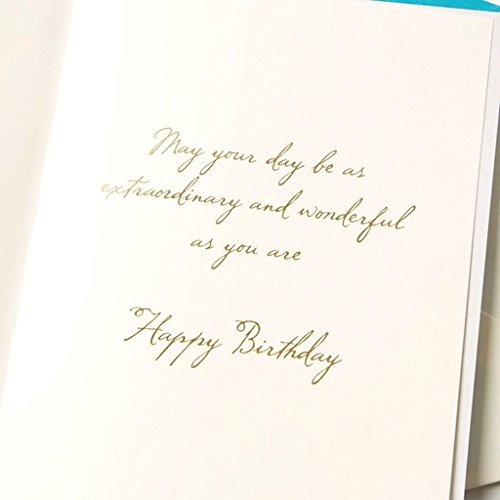 May your day be as
extraordinary and wonderful
as you are
Happy Birthday